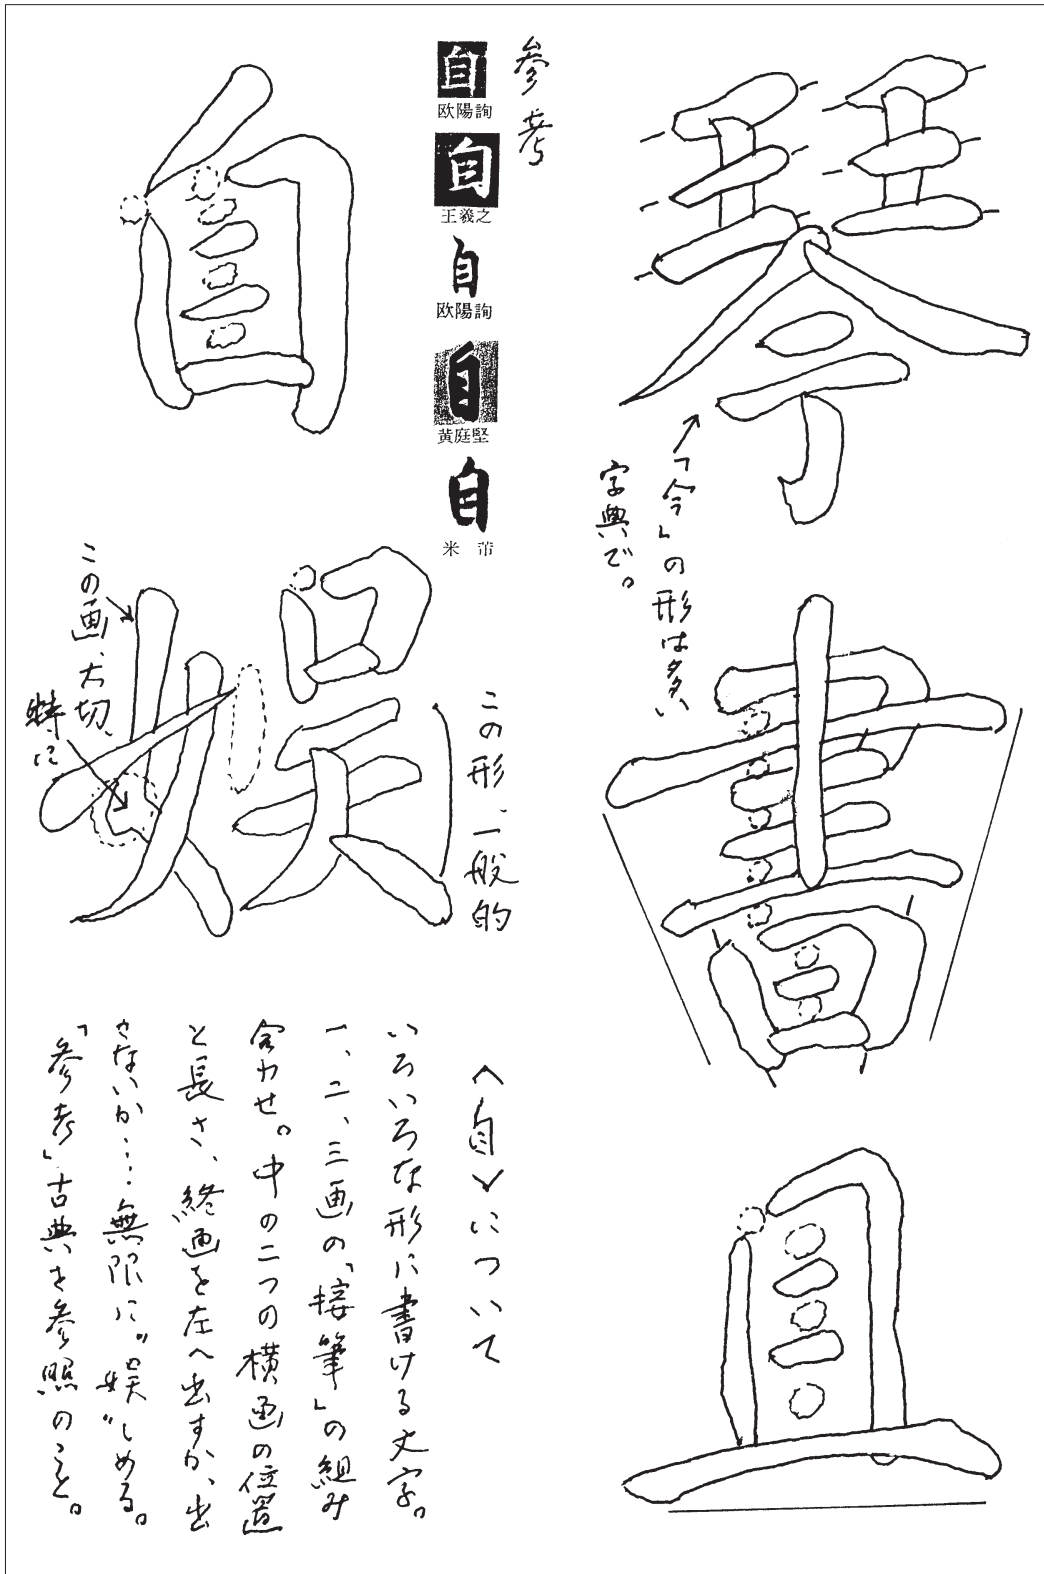 琴
「今」の形は多い
字典で。
書
且
参考
自
欧陽詢
自
王羲之
自
欧陽詢
自
黄庭堅
自
米芾
自
娯
この形、一般的
この画、大切、
特に
〈自〉について
いろいろな形に書ける文字。
一、二、三画の「接筆」の組み
合わせ。中の二つの横画の位置
と長さ、終画を左へ出すか、出
さないか…無限に〝娯〟しめる。
「参考」古典を参照のこと。